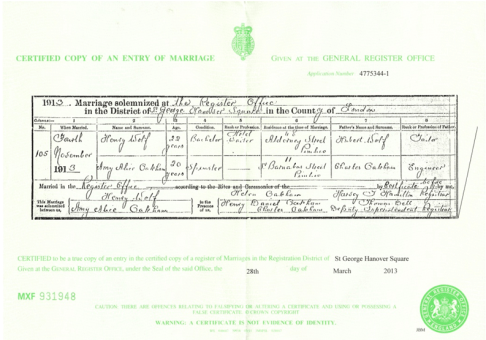 CERTIFIED COPY OF AN ENTRY OF MARRIAGE
GIVEN AT THE GENERAL REGISTER OFFICE
Application Number 4775344-1
1913. Marriage solemnized at the Register Office
in the District of St. George Hanover Square in the County of London
Columns:— 1 2 3 4 5 6 7 8
No. When Married. Name and Surname. Age. Condition. Rank or Profession. Residence at the time of Marriage. Father's Name and Surname. Rank or Profession of Father.
105 Fourth November 1913 Henry Wolf years Bachelor Hotel Waiter 48 Street Pimlico Wolf Tailor
Amy Alice Oakham 20 years Spinster 11 St Barnabas Street Pimlico Charles Oakham Engineer
Married in the Register Office according to the Rites and Ceremonies of the by Certificate before by me,
This Marriage was solemnized between us, Henry Wolf
Amy Alice Oakham
in the Presence of us, Helen Oakham
Henry Daniel
Charles Oakham
Harvey J Hamilton Registrar
Thomas Bell
Deputy Superintendent Registrar
CERTIFIED to be a true copy of an entry in the certified copy of a register of Marriages in the Registration District of St George Hanover Square
Given at the GENERAL REGISTER OFFICE, under the Seal of the said Office, the 28th day of March 2013
MXF 931948
CAUTION: THERE ARE OFFENCES RELATING TO FALSIFYING OR ALTERING A CERTIFICATE AND USING OR POSSESSING A
FALSE CERTIFICATE. ©CROWN COPYRIGHT
WARNING: A CERTIFICATE IS NOT EVIDENCE OF IDENTITY.
GENERAL REGISTER OFFICE
ENGLAND